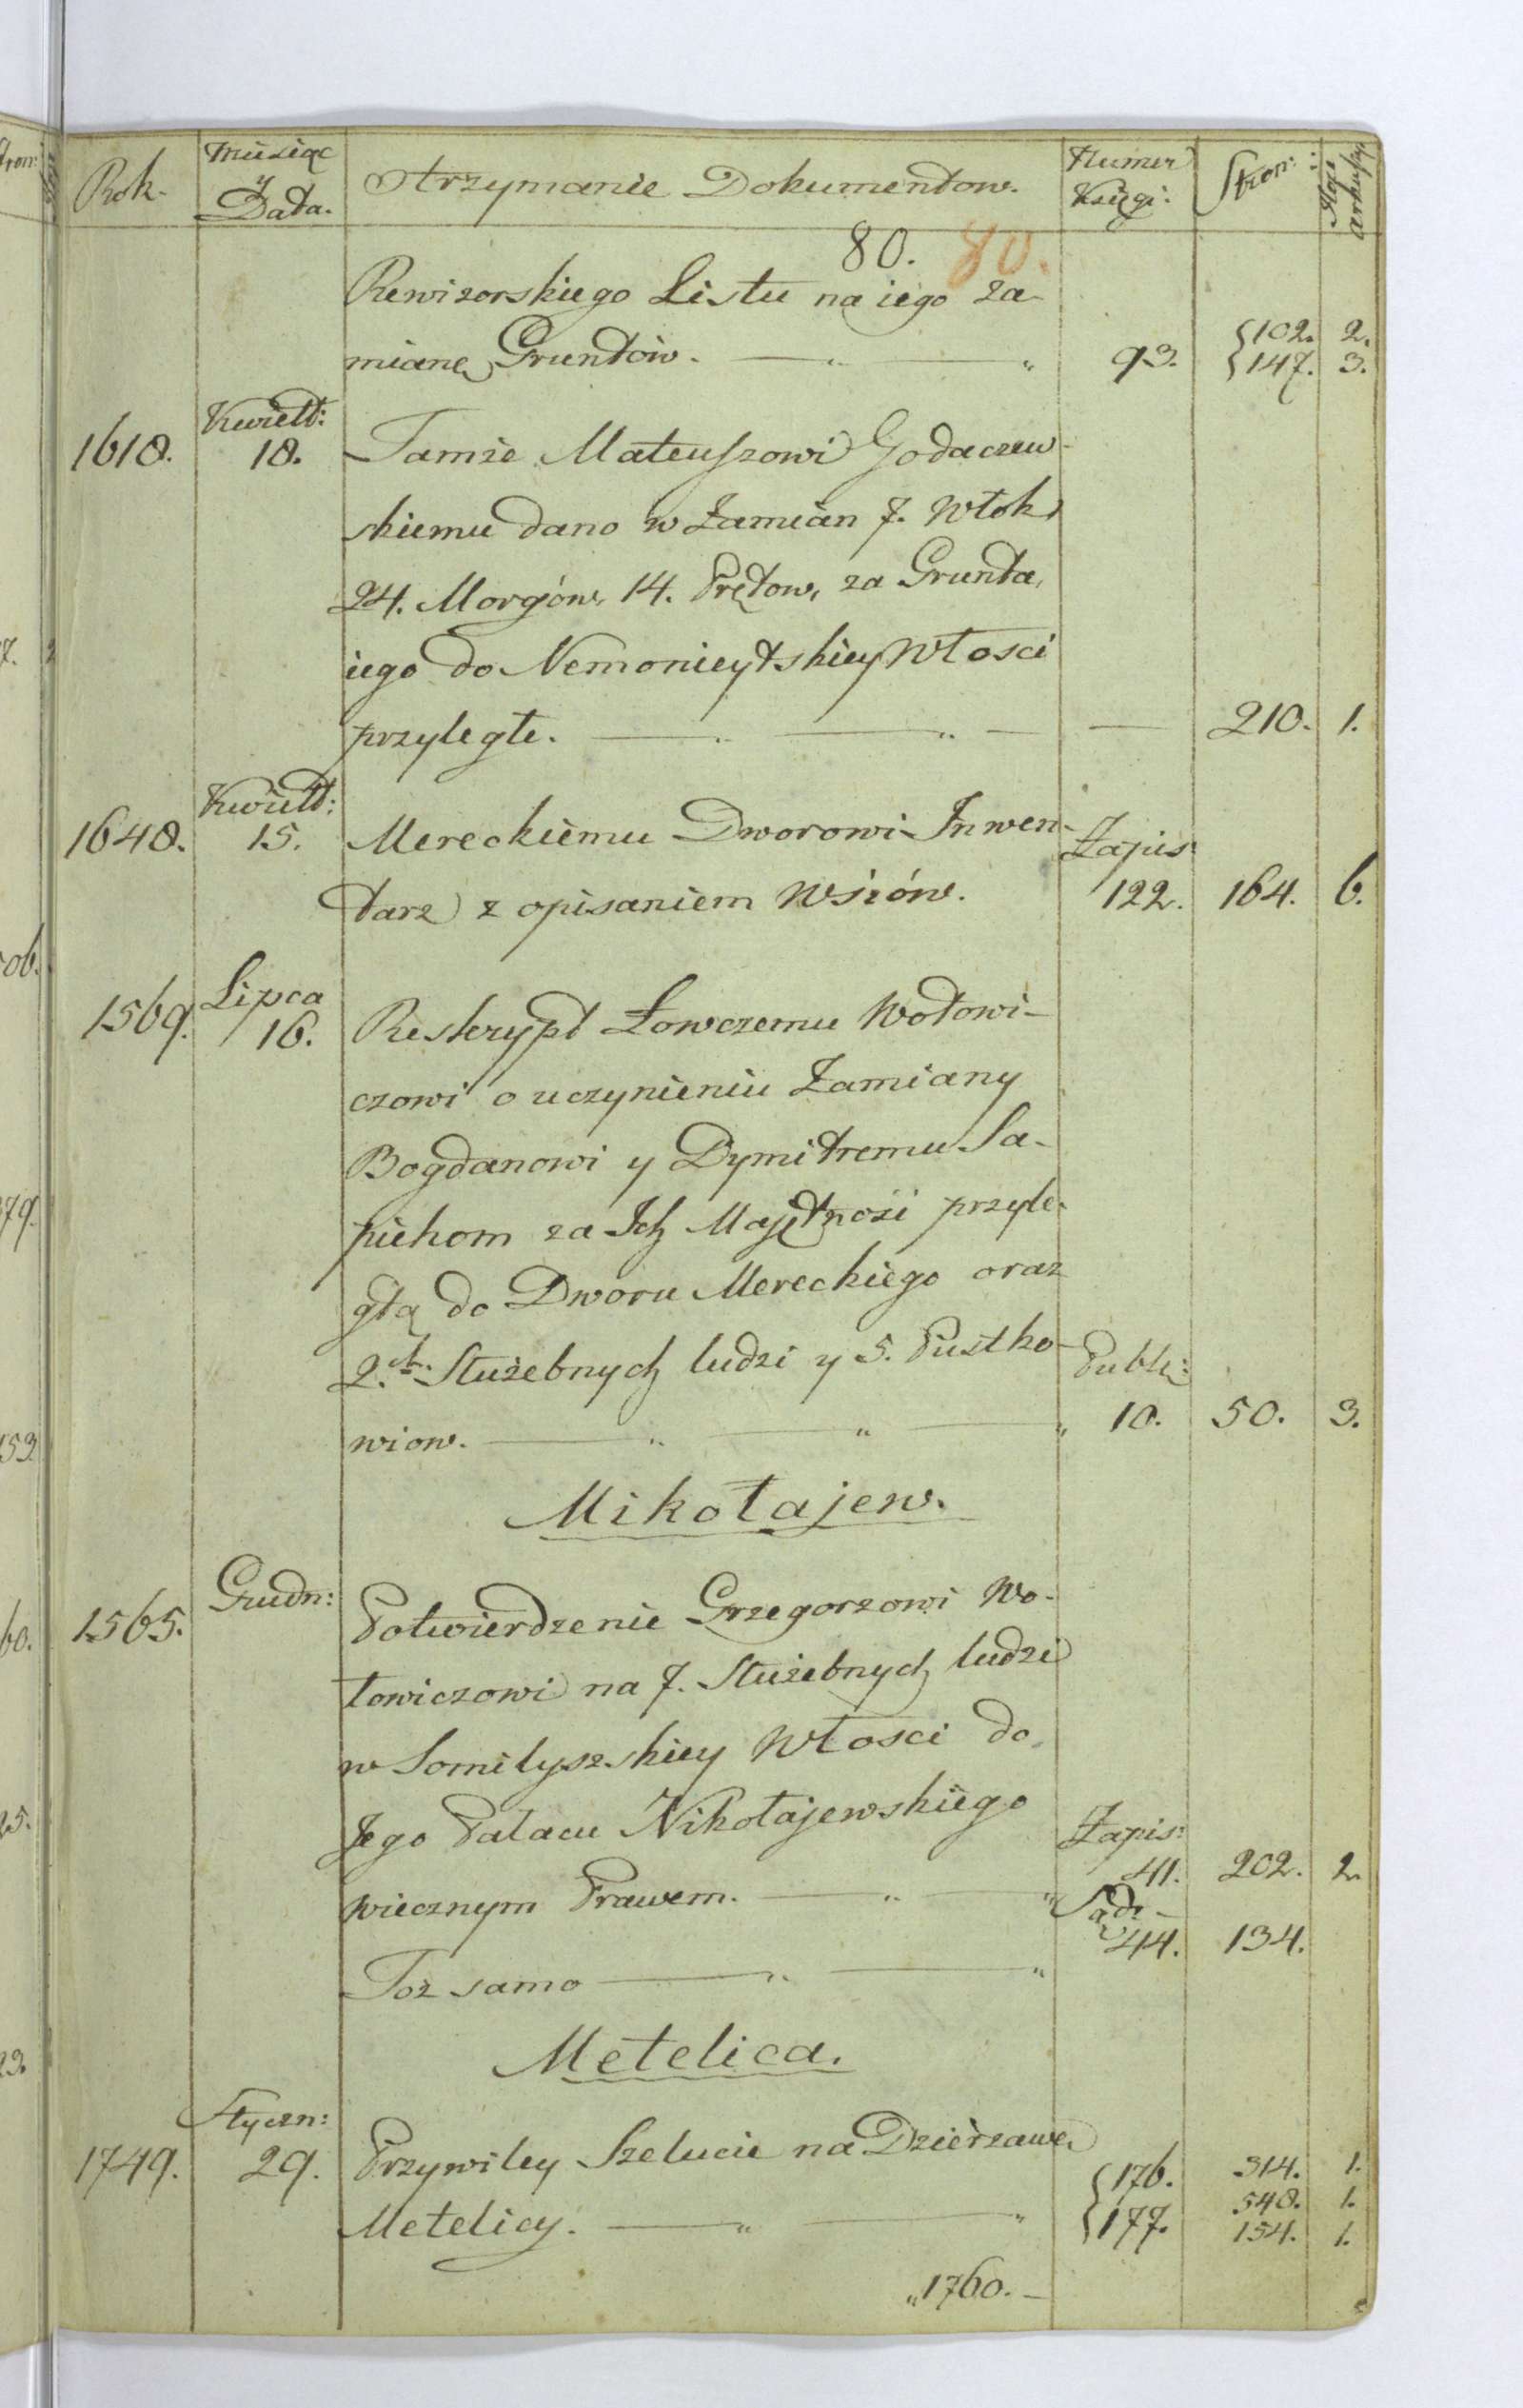 Rok. Miesiąc y Data. Otrzymanie Dokumentow. Numer Księgi. Stron: Ilość arkuszy
80. 80.
Rewizorskiego Listu na iego za-
mianę Gruntów. 93. {102. 2.
{147. 3.
1618. Kwiett: 18. Tamże Mateuszowi Godaczew-
skiemu dano w Zamian 7. Włok
24. Morgów, 14. Prętow, za Grunta,
iego do Nemonieytskiey Włosci
przyległe. 210. 1.
1648. Kwiett: 15. Mereckiemu Dworowi Inwen-
tarz z opisaniem Wsiów. Zapis: 122. 164. 6.
1569. Lipca 16. Reskrypt Łowczemu Wołowi-
czowi o uczynieniu Zamiany
Bogdanowi y Dymitremu Sa-
piehom za Ich Majętnosi przyle-
głą do Dworu Mereckiego oraz
2.ch Służebnych ludzi y 5. Pustko-
wiow. Publi: 10. 50. 3.
Mikołajew.
1565. Grudn: Potwierdzenie Grzegorzowi Wo-
łowiczowi na 7. Służebnych ludzi
w Somilyszskiey Włosci do
Jego Pałacu Nikołajewskiego
wiecznym Prawem. Zapis: 41. 202. 2.
Toż samo Sąd: 44. 134.
Metelica.
1749. Styczn: 29. Przywiley Szelucie na Dzierzawę
Metelicy. {176. 314. 1.
548. 1.
{177. 154. 1.
„1760.